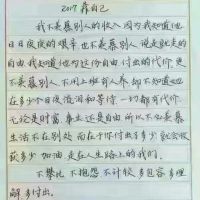 2017 靠自己
我不羡慕别人的收入因为我知道他
日日夜夜的艰辛也不羡慕别人说走就走的
自由我知道他为这份自由付出的代价更
不羡慕别人不用上班有人养却不知道她
在多少个日夜流泪和等待一切都有代价
无论是财富事业还是自由所以不必羡慕
生活不在别处而在于你付出了多少就会收
获多少加油走在人生路上的我们
不攀比不抱怨不计较多包容多理
解多付出